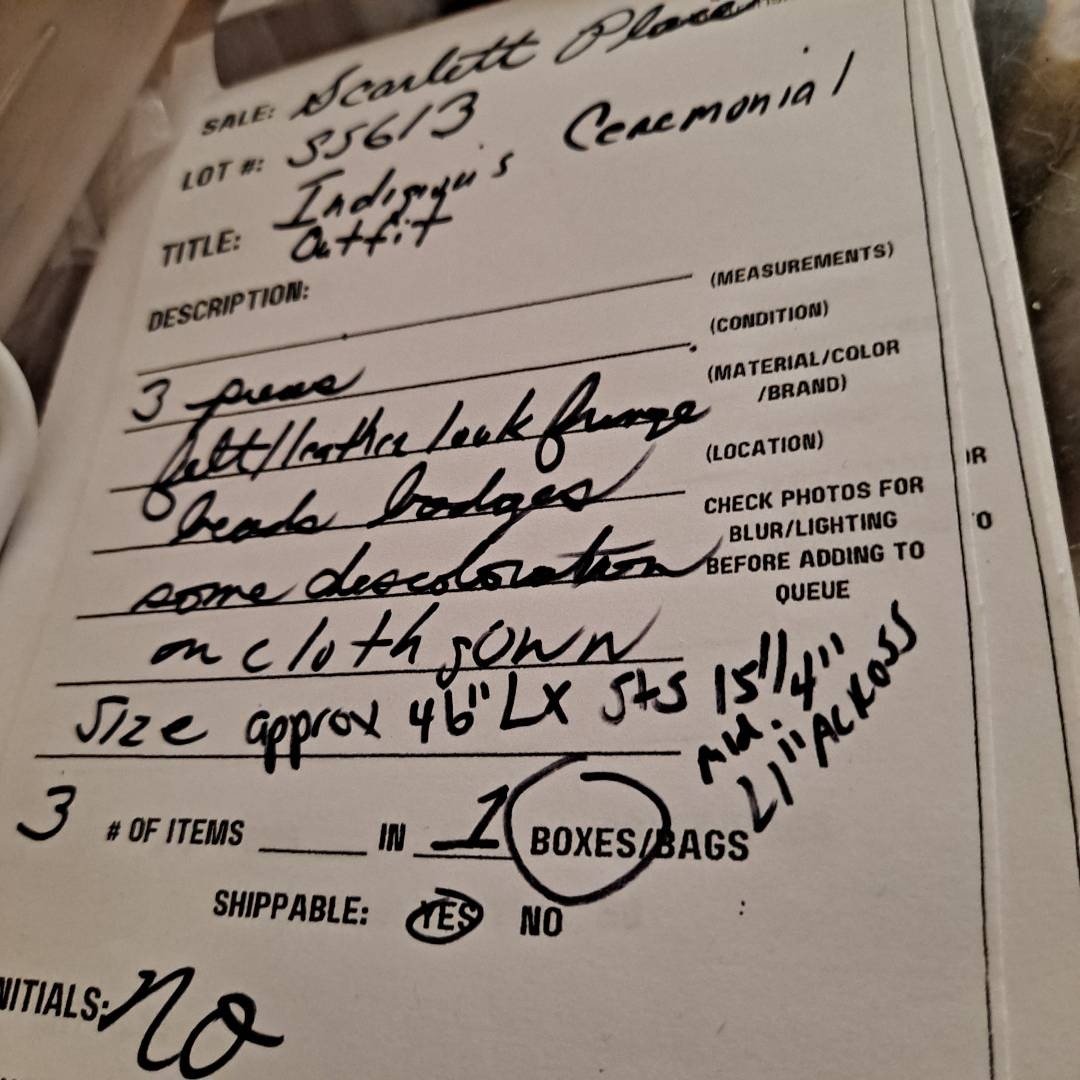 SALE: Scarlett Place
LOT #: 55613
TITLE: Indigiqu's Ceremonial
Outfit
DESCRIPTION:
(MEASUREMENTS)
(CONDITION)
3 pieces
(MATERIAL/COLOR
/BRAND)
felt/leather look fringe
(LOCATION)
beads badges
CHECK PHOTOS FOR
BLUR/LIGHTING
BEFORE ADDING TO
QUEUE
some descoloration
on cloth gown
Size approx 46" LX StS 15 1/4"
mid. 21" ACROSS
3 # OF ITEMS IN 1 BOXES/BAGS
SHIPPABLE: YES NO
NITIALS: no
OR
O